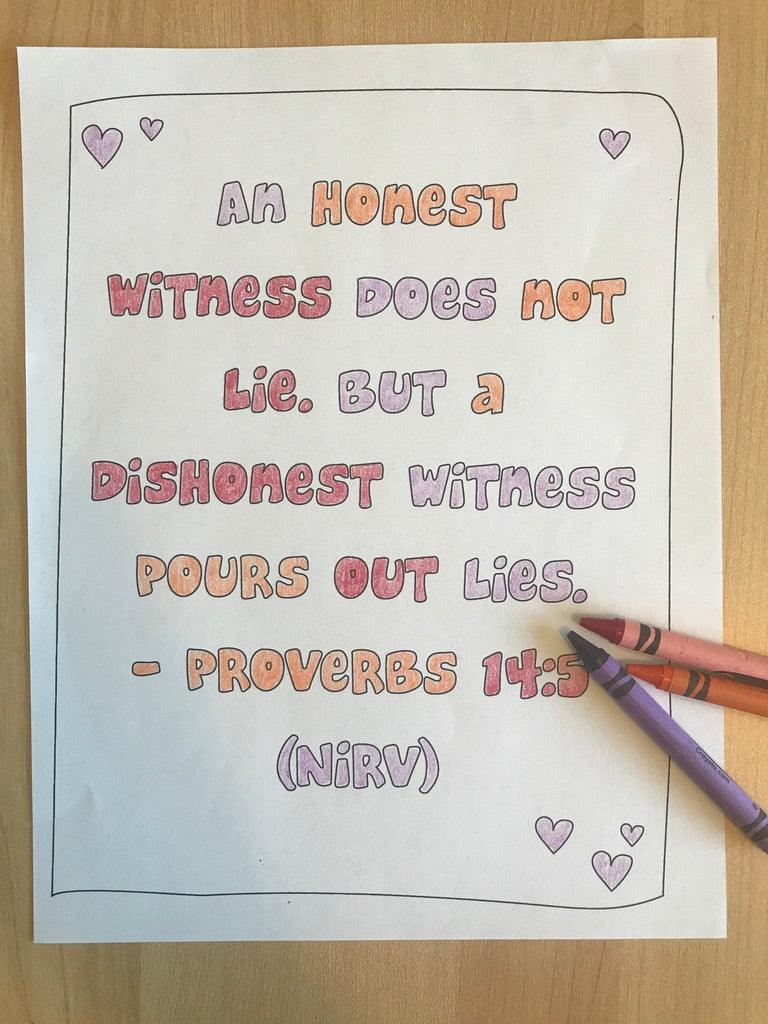 An Honest
Witness Does not
Lie. But a
Dishonest Witness
Pours Out Lies.
- Proverbs 14:5
(NiRV)
Crayola.com